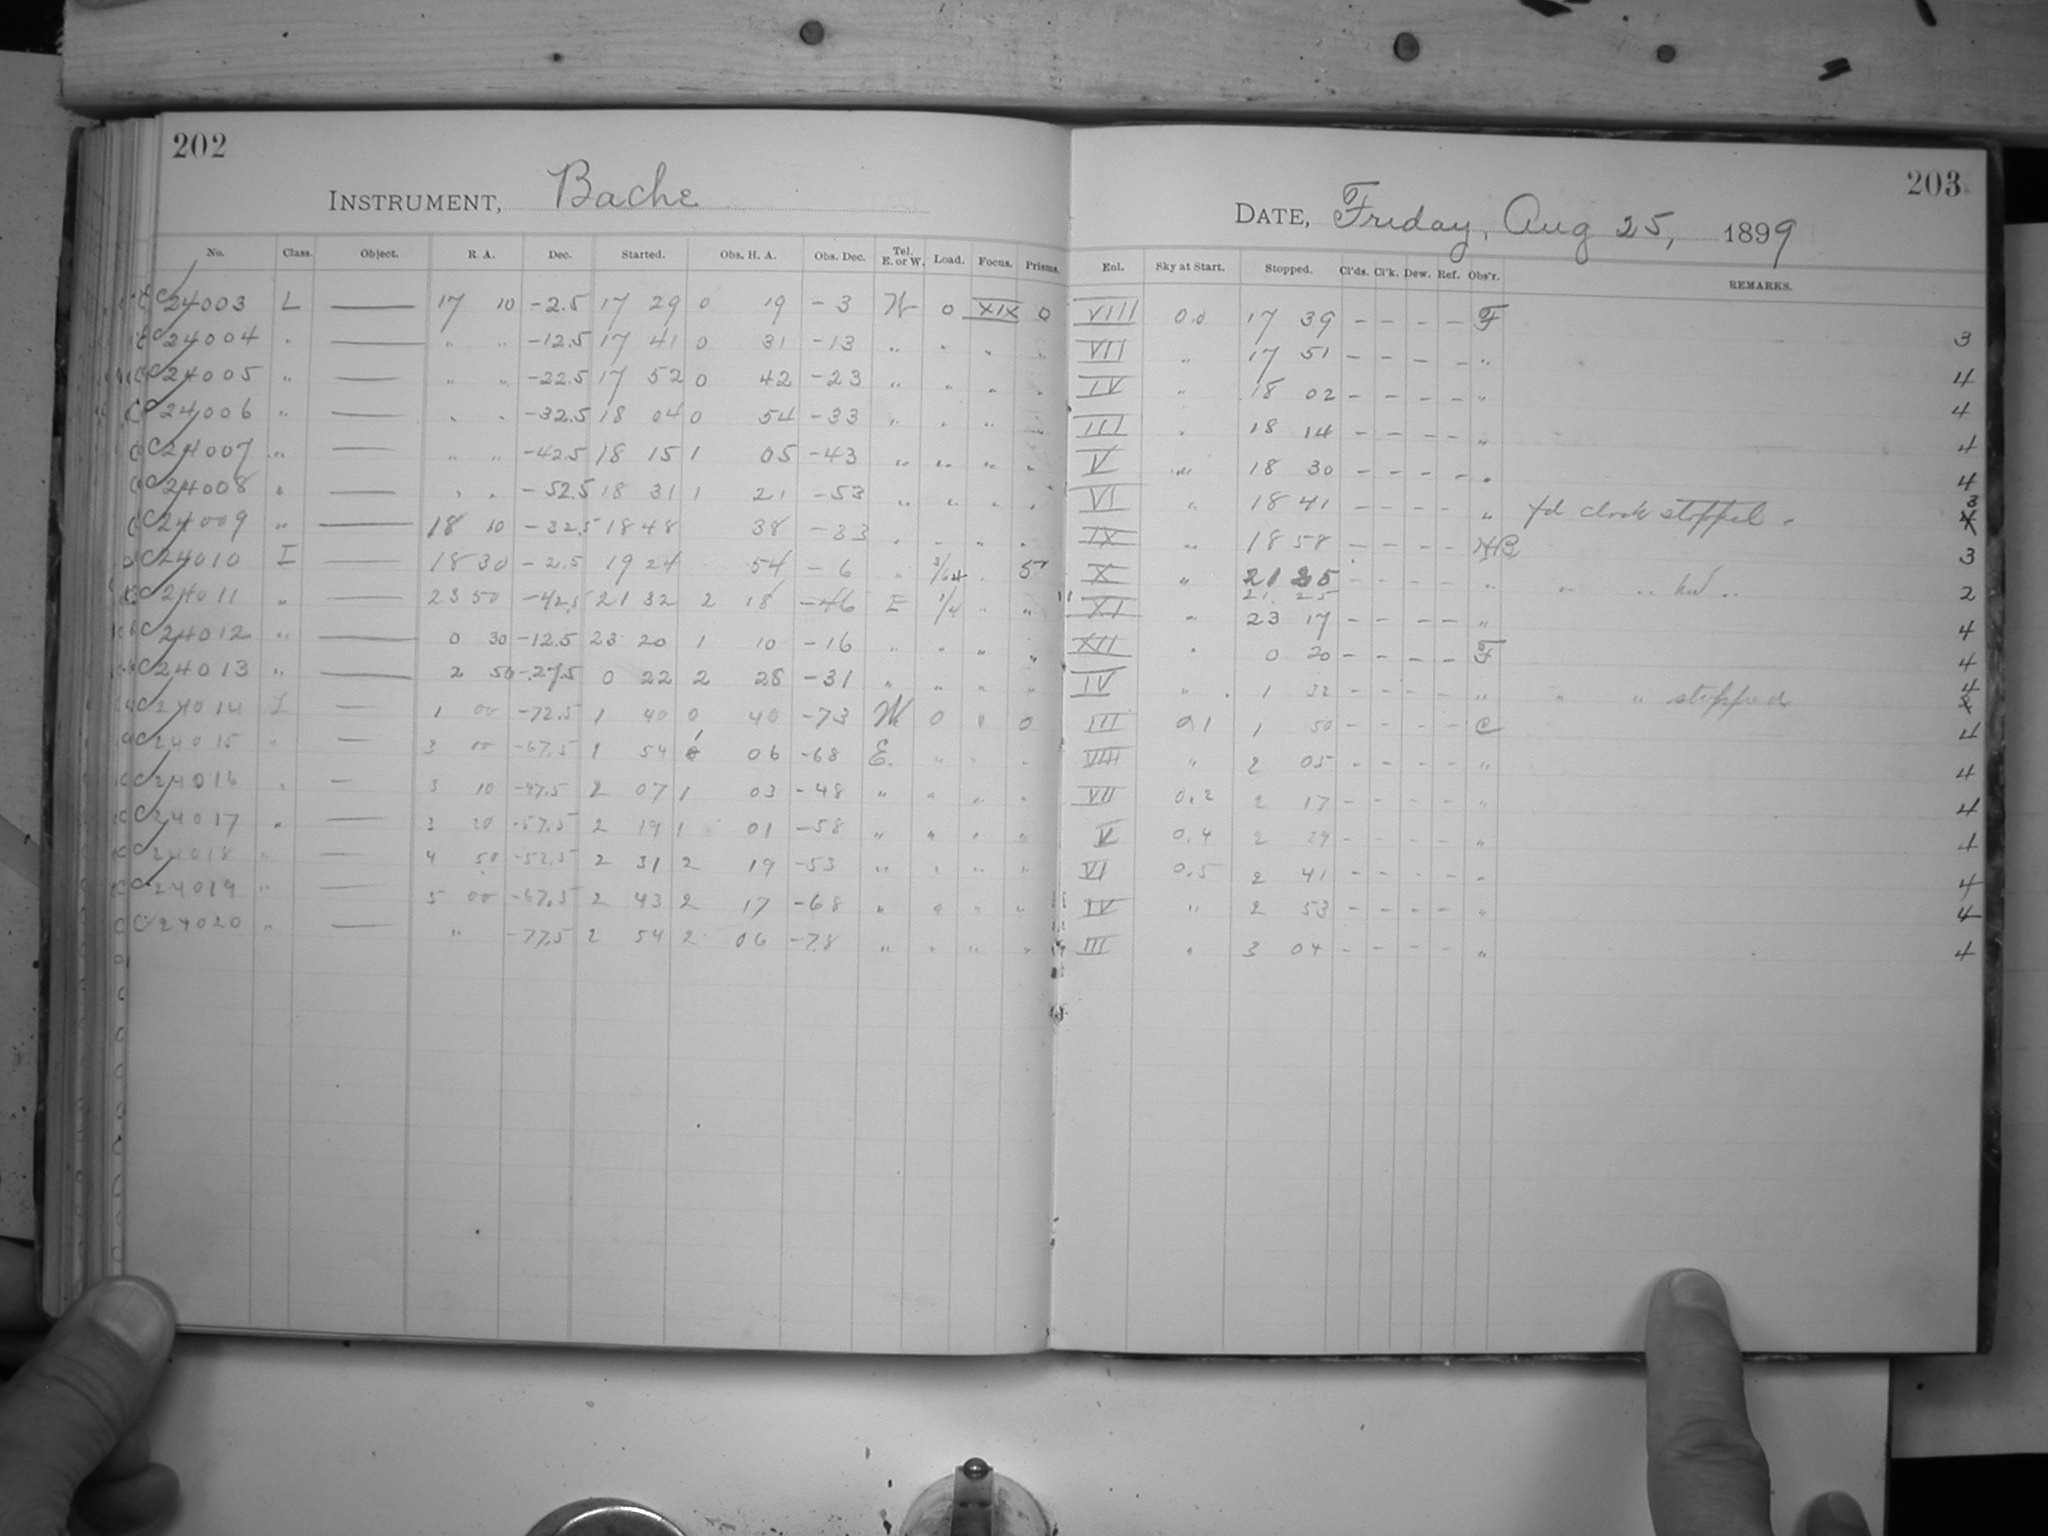 202
INSTRUMENT, Bache
No. Class. Object. R. A. Dec. Started. Obs. H. A. Obs. Dec. Tel. E. or W. Load. Focus. Prisms.
C24003 L — 17 10 -2.5 17 29 0 19 -3 W 0 XIX 0
C24004 " — " " -12.5 17 41 0 31 -13 " " " "
C24005 " — " " -22.5 17 52 0 42 -23 " " " "
C24006 " — " " -32.5 18 04 0 54 -33 " " " "
C24007 " — " " -42.5 18 15 1 05 -43 " " " "
C24008 " — " " -52.5 18 31 1 21 -53 " " " "
C24009 " — 18 10 -32.5 18 48 38 -33 " " " "
C24010 I — 18 30 -2.5 19 24 54 -6 " 3/64 " 5
C24011 " — 23 50 -42.5 21 32 2 18 -46 E 1/4 " "
C24012 " — 0 30 -12.5 23 20 1 10 -16 " " " "
C24013 " — 2 50 -27.5 0 22 2 28 -31 " " " "
C24014 L — 1 00 -72.5 1 40 0 40 -73 W 0 " 0
C24015 " — 3 00 -67.5 1 54 1 06 -68 E. " " "
C24016 " — 3 10 -47.5 2 07 1 03 -48 " " " "
C24017 " — 3 20 -57.5 2 19 1 01 -58 " " " "
C24018 " — 4 50 -52.5 2 31 2 19 -53 " " " "
C24019 " — 5 00 -67.5 2 43 2 17 -68 " " " "
C24020 " — " -77.5 2 54 2 06 -78 " " " "
203
DATE, Friday, Aug 25, 1899
Enl. Sky at Start. Stopped. Cl'ds. Cl'k. Dew. Ref. Obs'r. REMARKS.
VIII 0.0 17 39 - - - - F 3
VII " 17 51 - - - - " 4
IV " 18 02 - - - - " 4
III " 18 14 - - - - " 4
V " 18 30 - - - - " 4
VI " 18 41 - - - - " fd clock stopped. 3
IX " 18 58 - - - - 3
X " 21 25 - - - - " " " " 2
21 25
XI " 23 17 - - - - " 4
XII " 0 20 - - - - F 4
IV " 1 32 - - - - " " " stopped 4
III 0.1 1 50 - - - - C 4
VIII " 2 05 - - - - " 4
VII 0.2 2 17 - - - - " 4
V 0.4 2 29 - - - - " 4
VI 0.5 2 41 - - - - " 4
IV " 2 53 - - - - " 4
III " 3 04 - - - - " 4